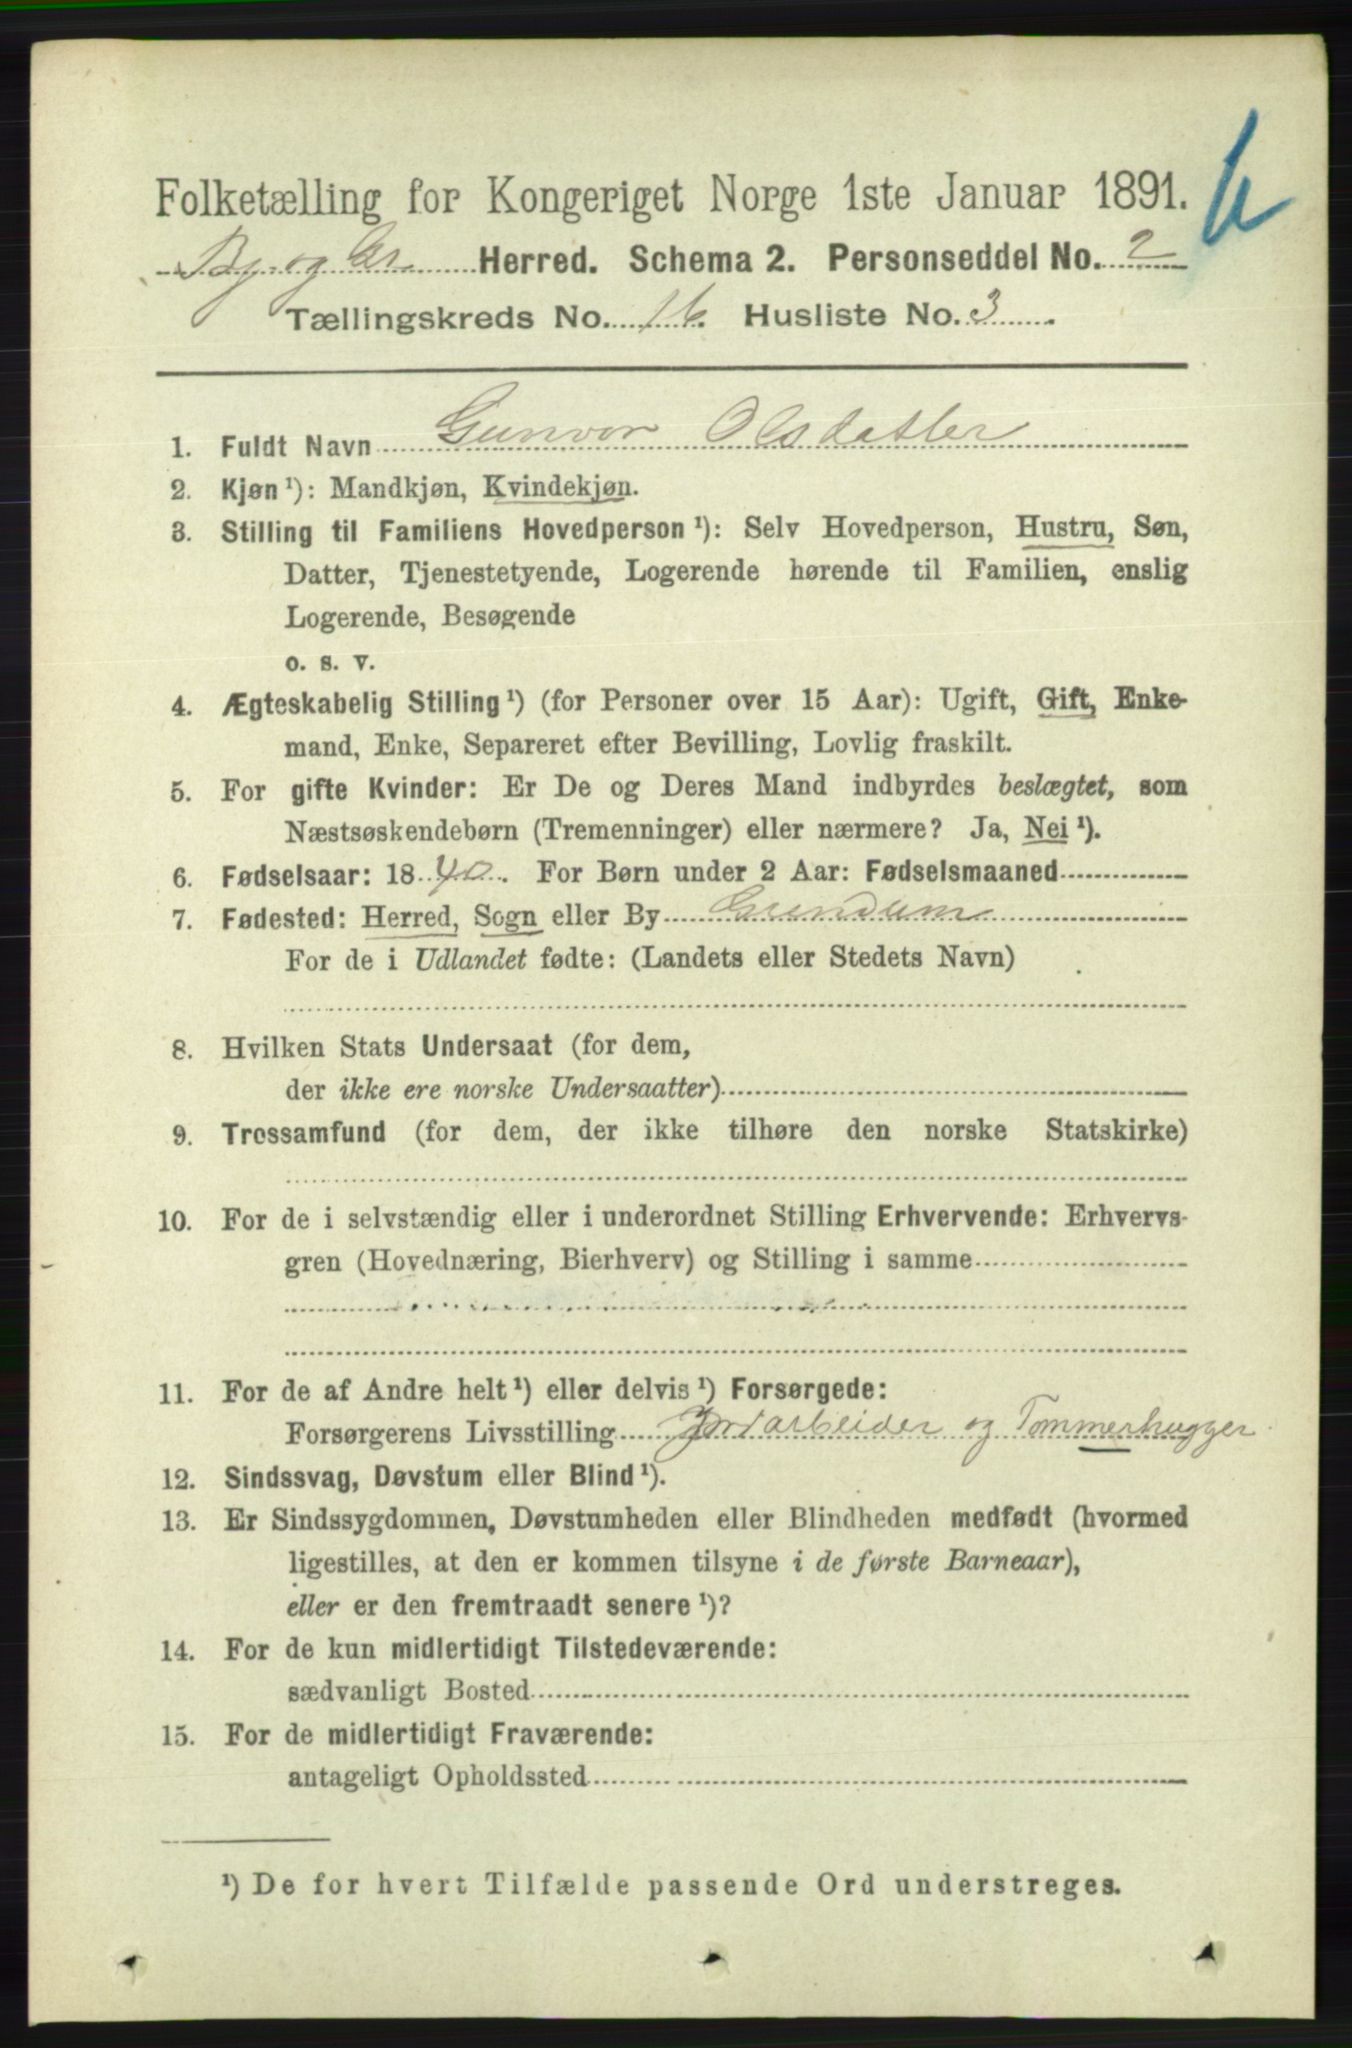 Folketælling for Kongeriget Norge 1ste Januar 1891.
By og Gr Herred. Schema 2. Personseddel No. 2
Tællingskreds No. 16. Husliste No. 3
1. Fuldt Navn Gunvor Olsdatter
2. Kjøn ¹): Mandkjøn, Kvindekjøn.
3. Stilling til Familiens Hovedperson ¹): Selv Hovedperson, Hustru, Søn,
Datter, Tjenestetyende, Logerende hørende til Familien, enslig
Logerende, Besøgende
o. s. v.
4. Ægteskabelig Stilling ¹) (for Personer over 15 Aar): Ugift, Gift, Enke-
mand, Enke, Separeret efter Bevilling, Lovlig fraskilt.
5. For gifte Kvinder: Er De og Deres Mand indbyrdes beslægtet, som
Næstsøskendebørn (Tremenninger) eller nærmere? Ja, Nei ¹).
6. Fødselsaar: 1840. For Børn under 2 Aar: Fødselsmaaned
7. Fødested: Herred, Sogn eller By Grindum
For de i Udlandet fødte: (Landets eller Stedets Navn)
8. Hvilken Stats Undersaat (for dem,
der ikke ere norske Undersaatter)
9. Trossamfund (for dem, der ikke tilhøre den norske Statskirke)
10. For de i selvstændig eller i underordnet Stilling Erhvervende: Erhvervs-
gren (Hovednæring, Bierhverv) og Stilling i samme
11. For de af Andre helt ¹) eller delvis ¹) Forsørgede:
Forsørgerens Livsstilling Jordarbeider og Tømmerhugger
12. Sindssvag, Døvstum eller Blind ¹).
13. Er Sindssygdommen, Døvstumheden eller Blindheden medfødt (hvormed
ligestilles, at den er kommen tilsyne i de første Barneaar),
eller er den fremtraadt senere ¹)?
14. For de kun midlertidigt Tilstedeværende:
sædvanligt Bosted
15. For de midlertidigt Fraværende:
antageligt Opholdssted
¹) De for hvert Tilfælde passende Ord understreges.